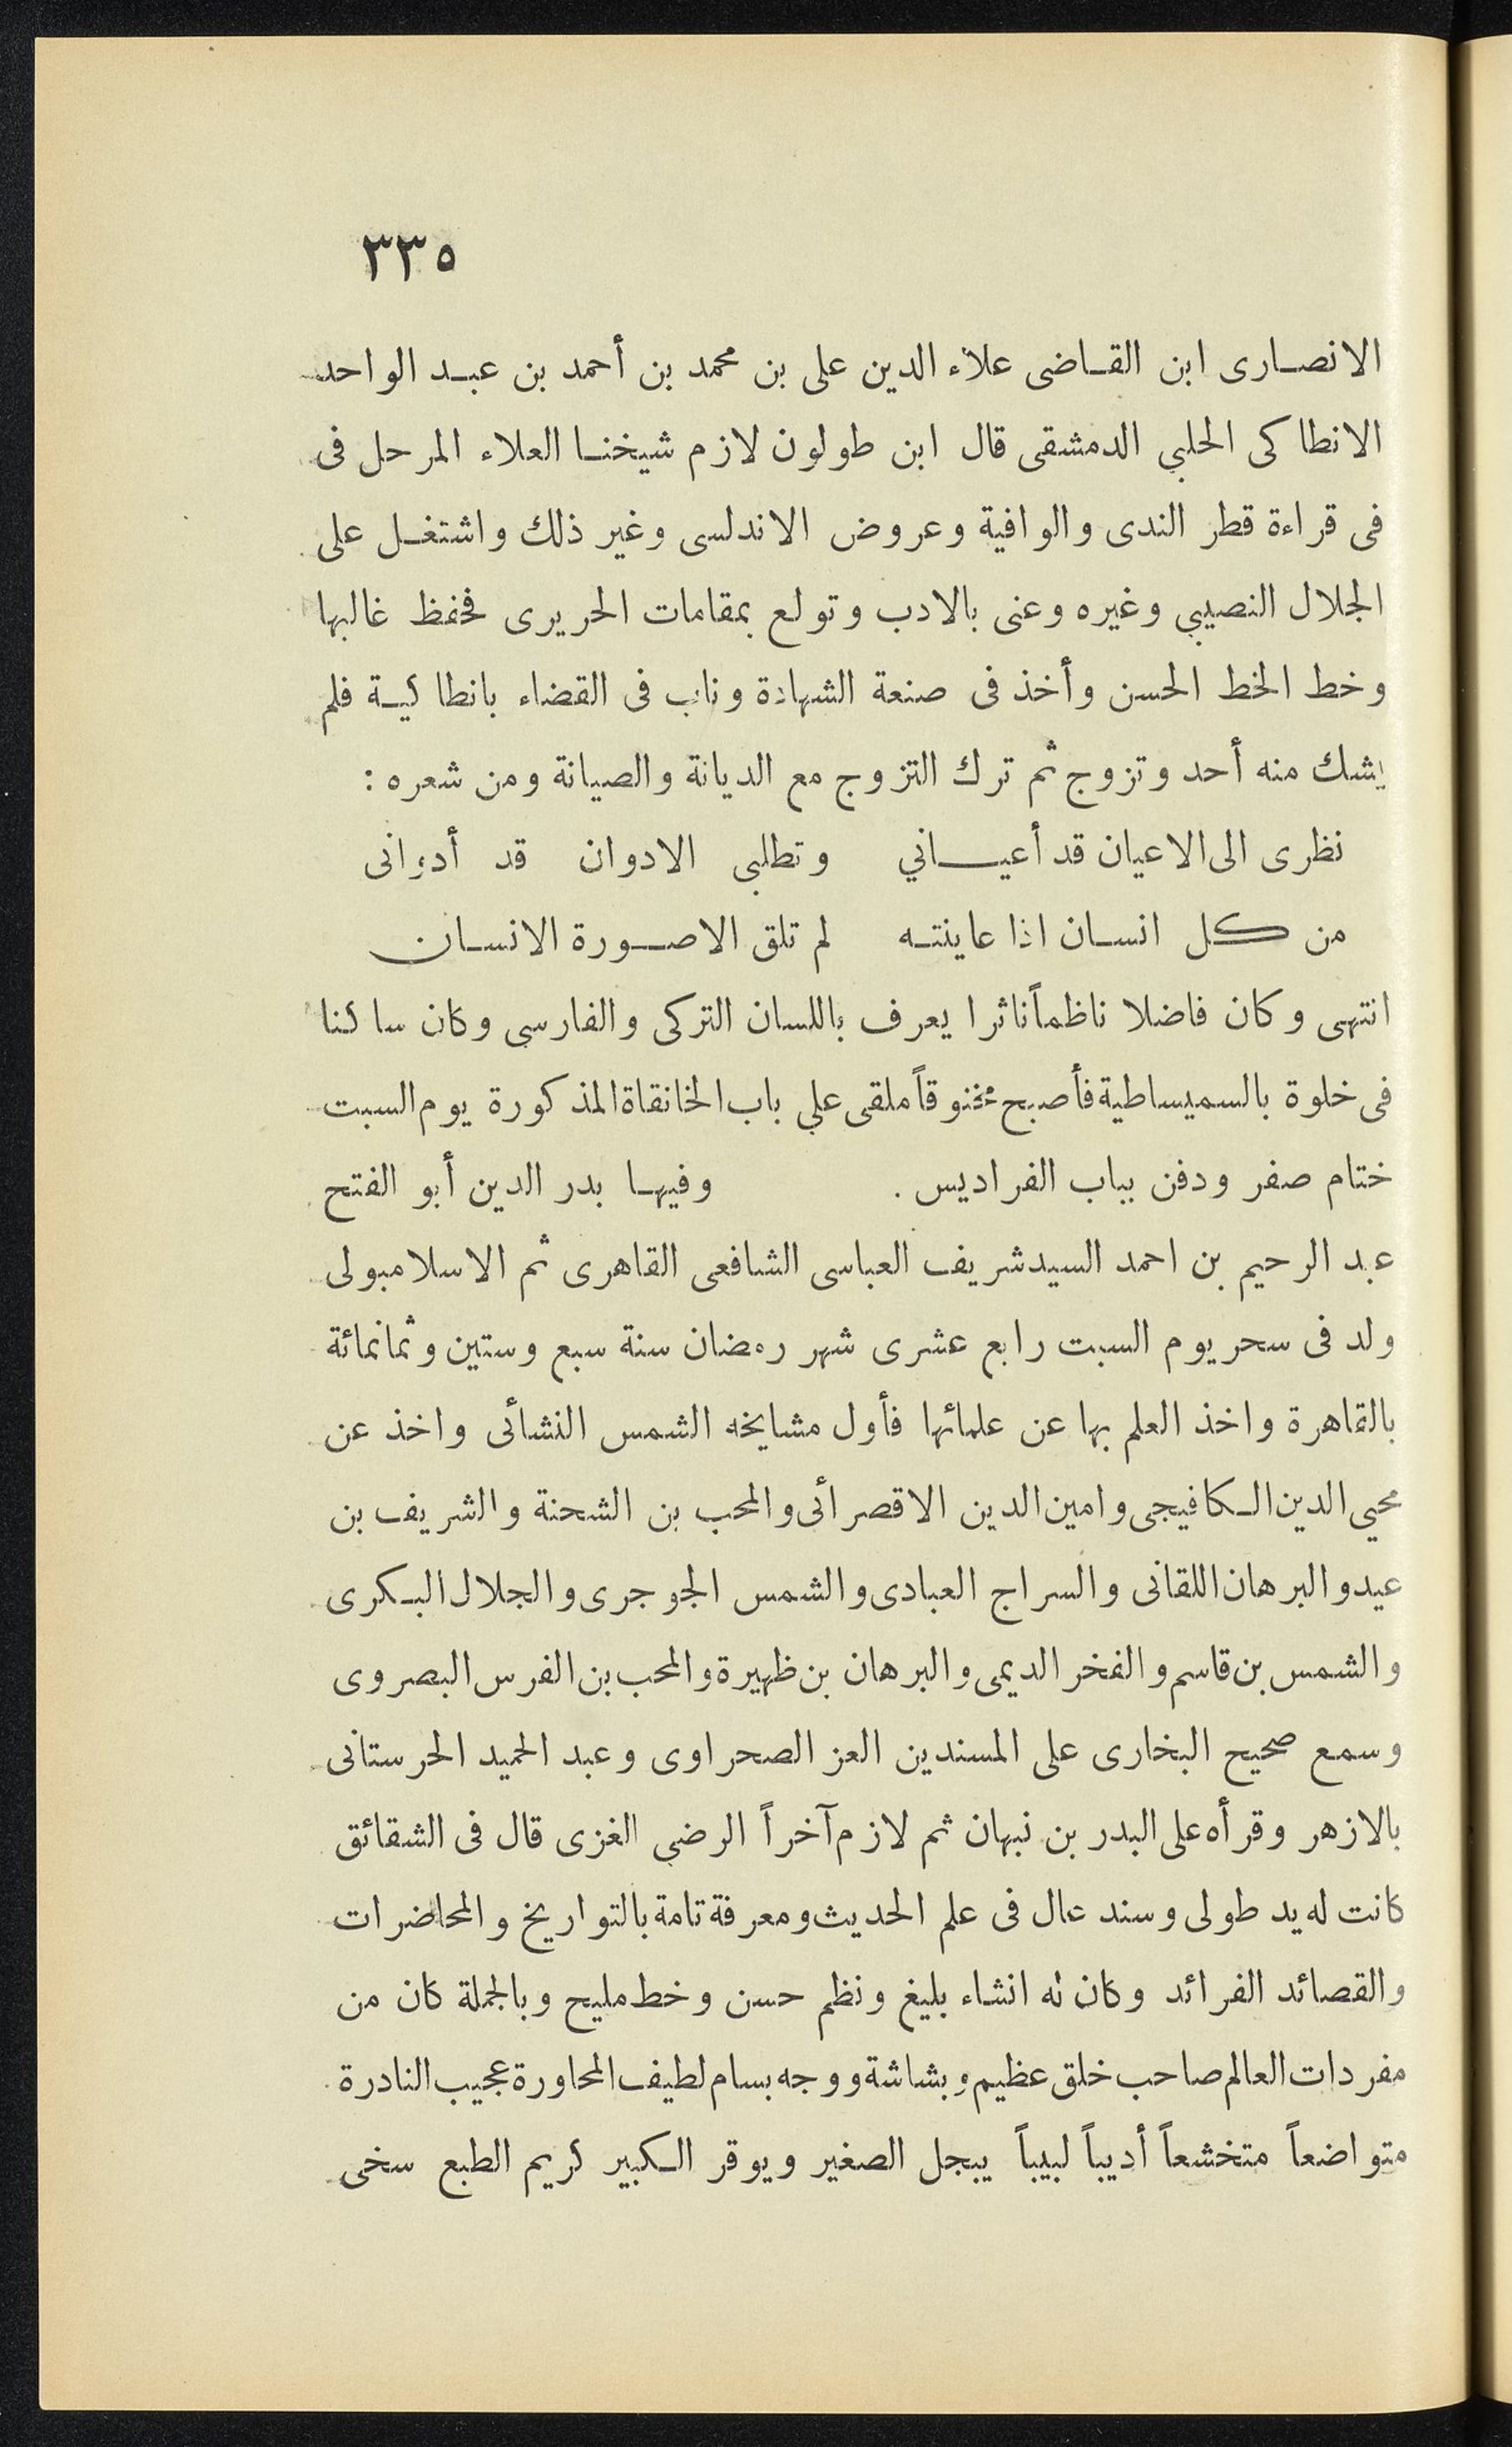 ٣٣٥
الانصارى ابن القاضى علاء الدين على بن محمد بن أحمد بن عبد الواحد
الانطاكى الحلبي الدمشقى قال ابن طولون لازم شيخنا العلاء المرحل فى
فى قراءة قطر الندى والوافية وعروض الاندلسى وغير ذلك واشتغل على
الجلال النصيبي وغيره وعنى بالادب وتولع بمقامات الحريرى فحفظ غالبها
وخط الخط الحسن وأخذ فى صنعة الشهادة وناب فى القضاء بانطاكية فلم
يشك منه أحد وتزوج ثم ترك التزوج مع الديانة والصيانة ومن شعره :
نظرى الى الاعيان قد أعياني وتطلبى الادوان قد أدوانى
من كل انسان اذا عاينته لم تلق الا صورة الانسان
انتهى وكان فاضلا ناظماً ناثرا يعرف باللسان التركى والفارسى وكان ساكنا
فى خلوة بالسميساطية فأصبح مخنوقاً ملقى علي باب الخانقاة المذكورة يوم السبت
ختام صفر ودفن بباب الفراديس . وفيها بدر الدين أبو الفتح
عبد الرحيم بن احمد السيد شريف العباسى الشافعى القاهرى ثم الاسلامبولى
ولد فى سحر يوم السبت رابع عشرى شهر رمضان سنة سبع وستين وثمانمائة
بالقاهرة واخذ العلم بها عن علمائها فأول مشايخه الشمس النشائى واخذ عن
محيي الدين الكافيجى وامين الدين الاقصرائى والمحب بن الشحنة والشريف بن
عيد والبرهان اللقانى والسراج العبادى والشمس الجوجرى والجلال البكرى
والشمس بن قاسم والفخر الديمى والبرهان بن ظهيرة والمحب بن الفرس البصروى
وسمع صحيح البخارى على المسندين العز الصحراوى وعبد الحميد الحرستانى
بالازهر وقرأه على البدر بن نبهان ثم لازم آخراً الرضي الغزى قال فى الشقائق
كانت له يد طولى وسند عال فى علم الحديث ومعرفة تامة بالتواريخ والمحاضرات
والقصائد الفرائد وكان له انشاء بليغ ونظم حسن وخط مليح وبالجملة كان من
مفردات العالم صاحب خلق عظيم وبشاشة ووجه بسام لطيف المحاورة عجيب النادرة
متواضعاً متخشعاً أديباً لبيباً يبجل الصغير ويوقر الكبير كريم الطبع سخى